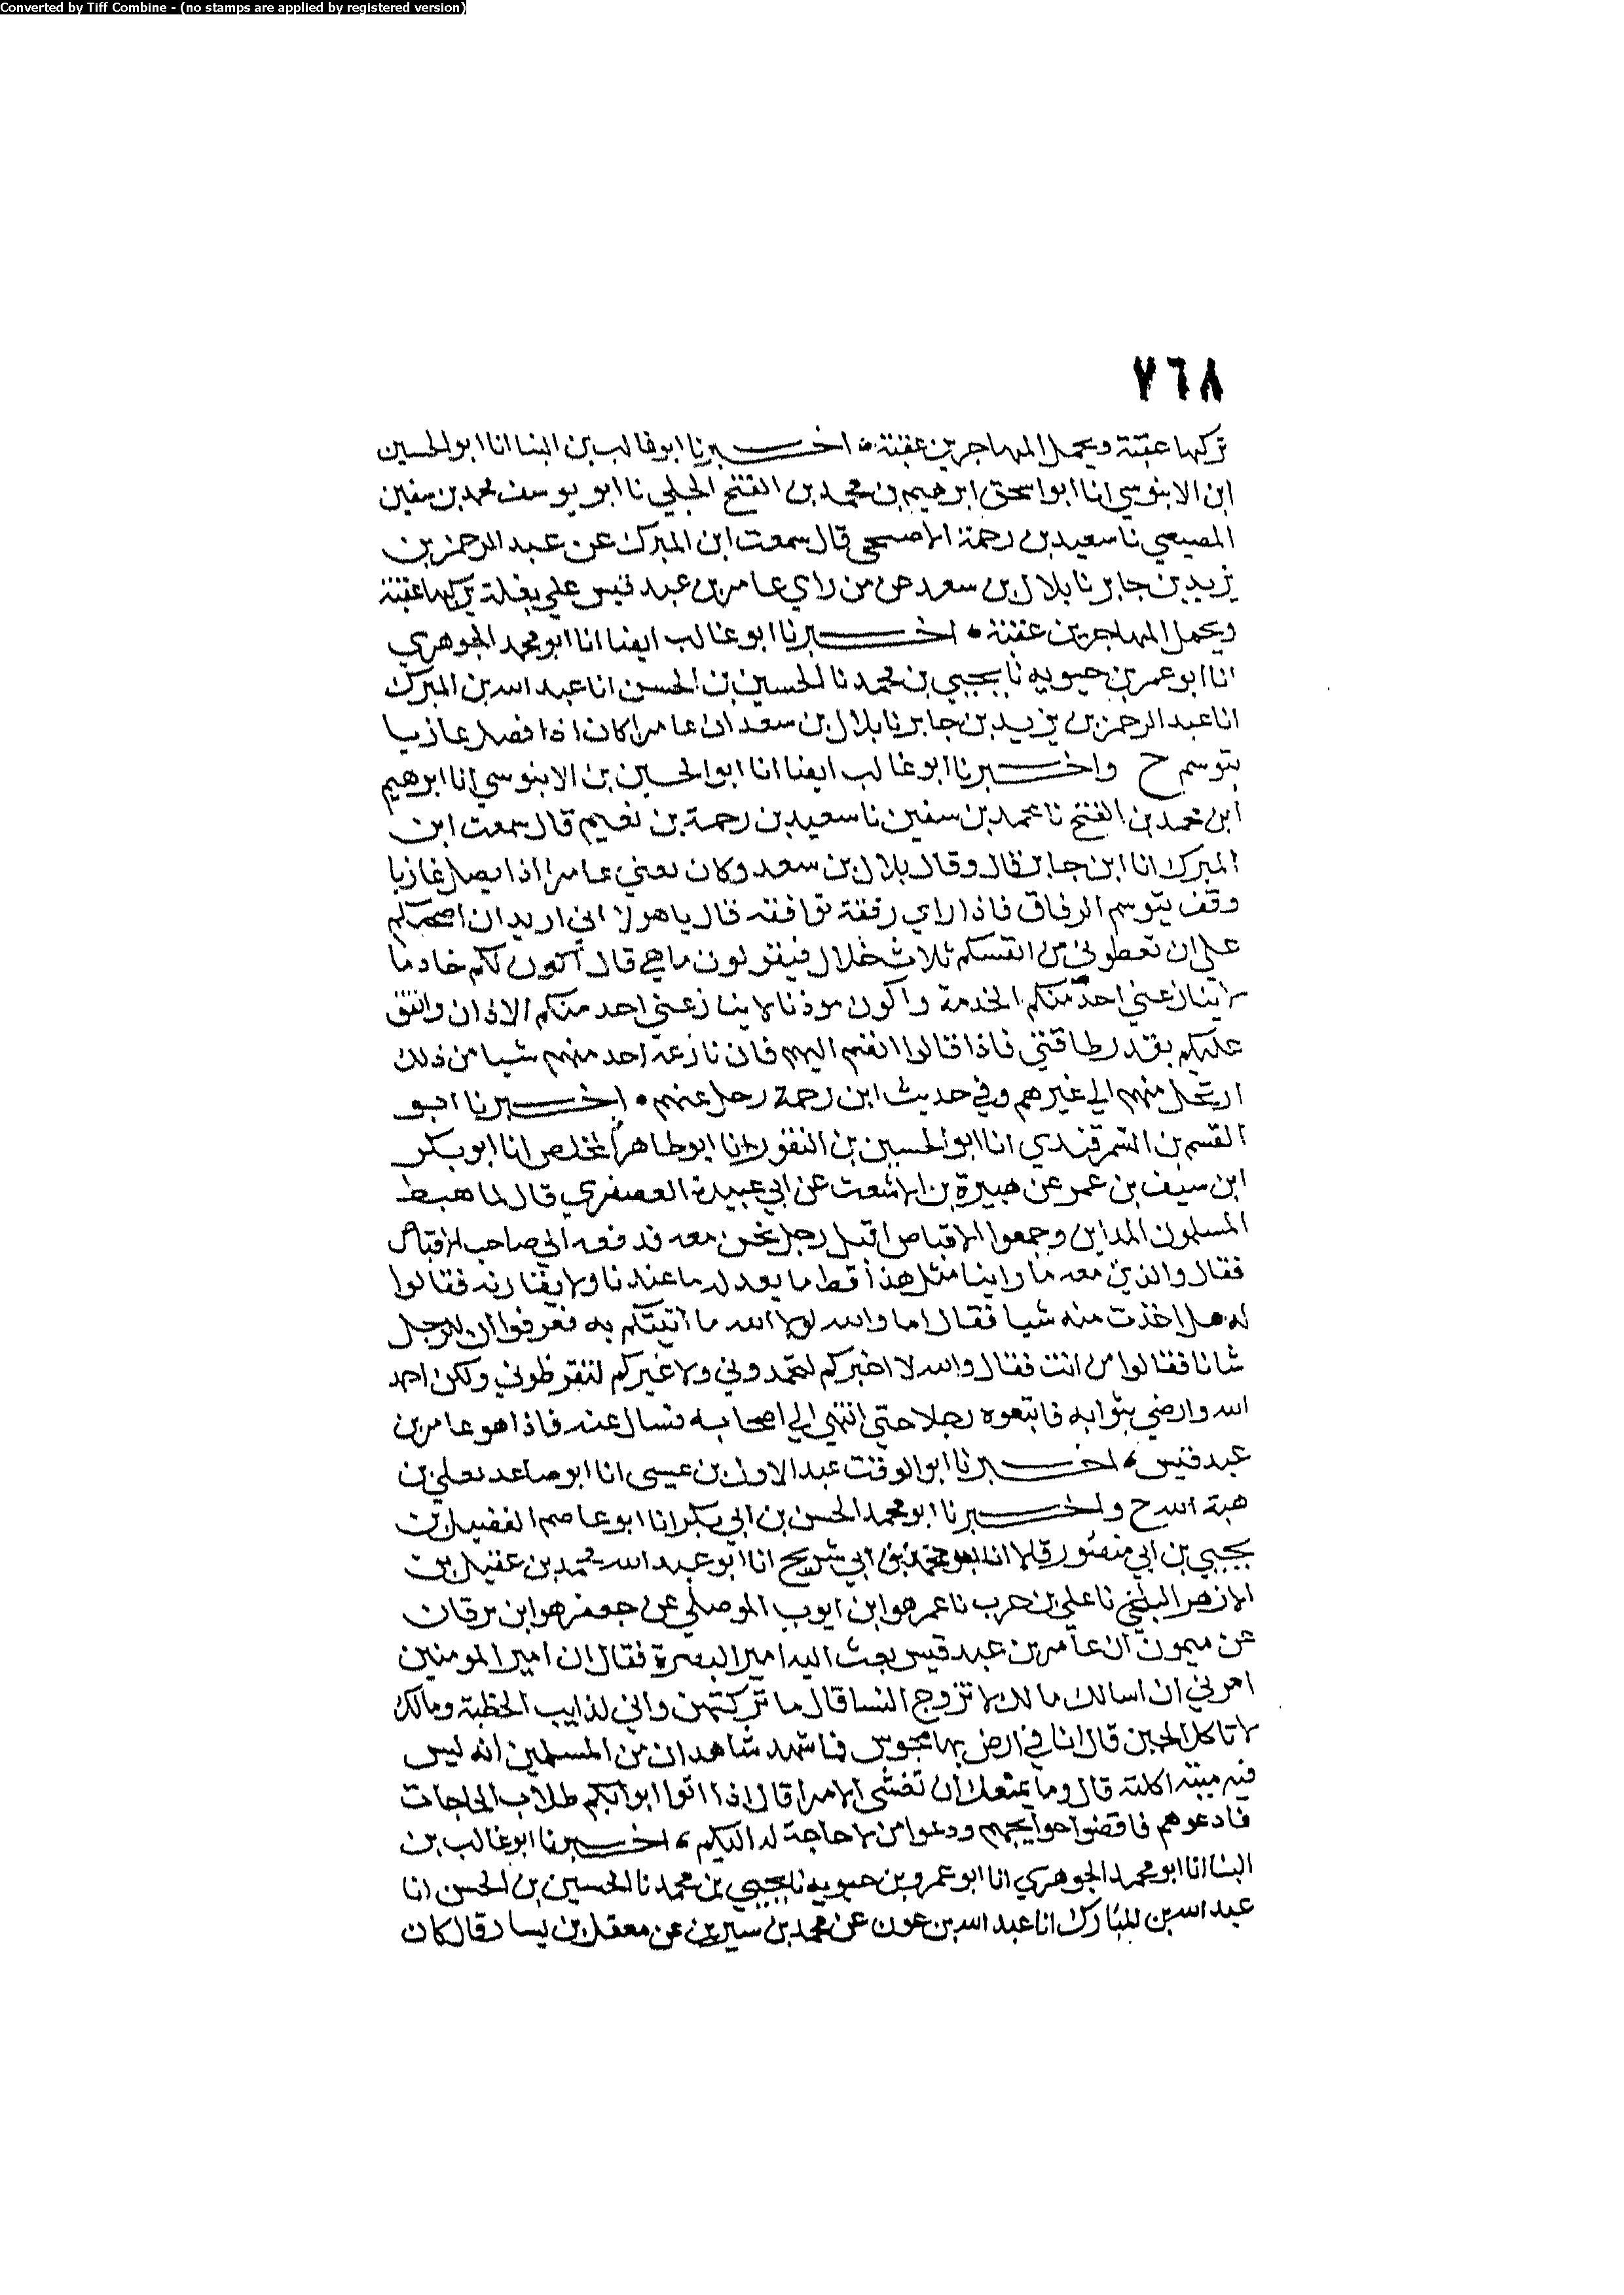 Converted by Tiff Combine - (no stamps are applied by registered version)
٧٦٨
تركبها عقبة ويحمل المهاجرين عقبة • اخبرنا ابو غالب بن البنا انا ابو الحسين
ابن الابنوسي انا ابو اسحق ابرهيم بن محمد بن الفتح الجلي نا ابو يوسف محمد بن سفين
المصيصي نا سعيد بن رحمة الاصبحي قال سمعت ابن المبرك عن عبد الرحمن بن
يزيد بن جابر نا بلال بن سعد عن من راي عامر بن عبد قيس علي بغلة يركبها عقبة
ويحمل المهاجرين عقبة • اخبرنا ابو غالب ايضا انا ابو محمد الجوهري
انا ابو عمر بن حيويه نا يحيي بن محمد نا الحسين بن الحسن انا عبد الله بن المبرك
انا عبد الرحمن بن يزيد بن جابر نا بلال بن سعد ان عامرا كان اذا فصل غازيا
يتوسم ح واخبرنا ابو غالب ايضا انا ابو الحسين بن الابنوسي انا ابرهيم
ابن محمد بن الفتح نا محمد بن سفين نا سعيد بن رحمة بن نعيم قال سمعت ابن
المبرك انا ابن جابر قال وقال بلال بن سعد وكان يعني عامرا اذا يصل غازيا
وقف يتوسم الرفاق فاذا راي رفقة توافقه قال يا هولا اني اريد ان اصحبكم
علي ان تعطوني من انفسكم ثلاث خلال فيقولون ما هي قال اكون لكم خادما
لا ينازعني احد منكم الخدمة واكون موذنا لا ينازعني احد منكم الاذان وانفق
عليكم بقدر طاقتي فاذا قالوا نعم انضم اليهم فان نازعه احد منهم شيا من ذلك
ارتحل منهم الي غيرهم وفي حديث ابن رحمة رحل عنهم • اخبرنا ابو
القسم بن السمرقندي انا ابو الحسين بن النقور انا ابو طاهر المخلص انا ابو بكر
ابن سيف بن عمر عن هبيرة بن الاشعث عن ابي عبيدة العصفري قال لما هبط
المسلمون المداين وجمعوا الاقباض اقبل رجل بحق معه فدفعه الي صاحب الاقباض
فقال والذين معه ما راينا مثل هذا قط ما يعدله ما عندنا ولا يقاربه فقالوا
له هل اخذت منه شيا فقال اما والله لولا الله ما اتيتكم به فعرفوا ان للرجل
شانا فقالوا من انت فقال والله لا اخبركم لتحمدوني ولا غيركم لتقرظوني ولكن احمد
الله وارضي بثوابه فاتبعوه رجلا حتي انتهي الي اصحابه فسال عنه فاذا هو عامر بن
عبد قيس ، اخبرنا ابو الوقت عبد الاول بن عيسى انا ابو صاعد يعلي بن
هبة الله ح واخبرنا ابو محمد الحسن بن ابي بكر انا ابو عاصم الفضيل بن
يحيي بن ابي منصور قالا انا ابو محمد بن ابي شريح انا ابو عبد الله محمد بن عقيل بن
الازهر البلخي نا علي بن حرب نا عمر هو ابن ايوب الموصلي عن جعفر هو ابن برقان
عن ميمون ان عامر بن عبد قيس بعث اليه امير البصرة فقال ان امير المومنين
امرني ان اسالك مالك لا تزوج النسا قال ما تركتهن واني لدايب الخطبة ومالك
لا تاكل الجبن قال انا في ارض بها مجوس فما شهد شاهدان من المسلمين انه ليس
فيه ميتة اكلته قال وما يمنعك ان تغشى الامرا قال اذا اتوا ابوابكم طلاب الحاجات
فادعوهم فاقضوا حوايجهم ودعوا من لا حاجة له اليكم ، اخبرنا ابو غالب بن
البنا انا ابو محمد الجوهري انا ابو عمرو بن حيويه نا يحيي بن محمد نا الحسين بن الحسن انا
عبد الله بن المبارك انا عبد الله بن عون عن محمد بن سيرين عن معقل بن يسار قال كان